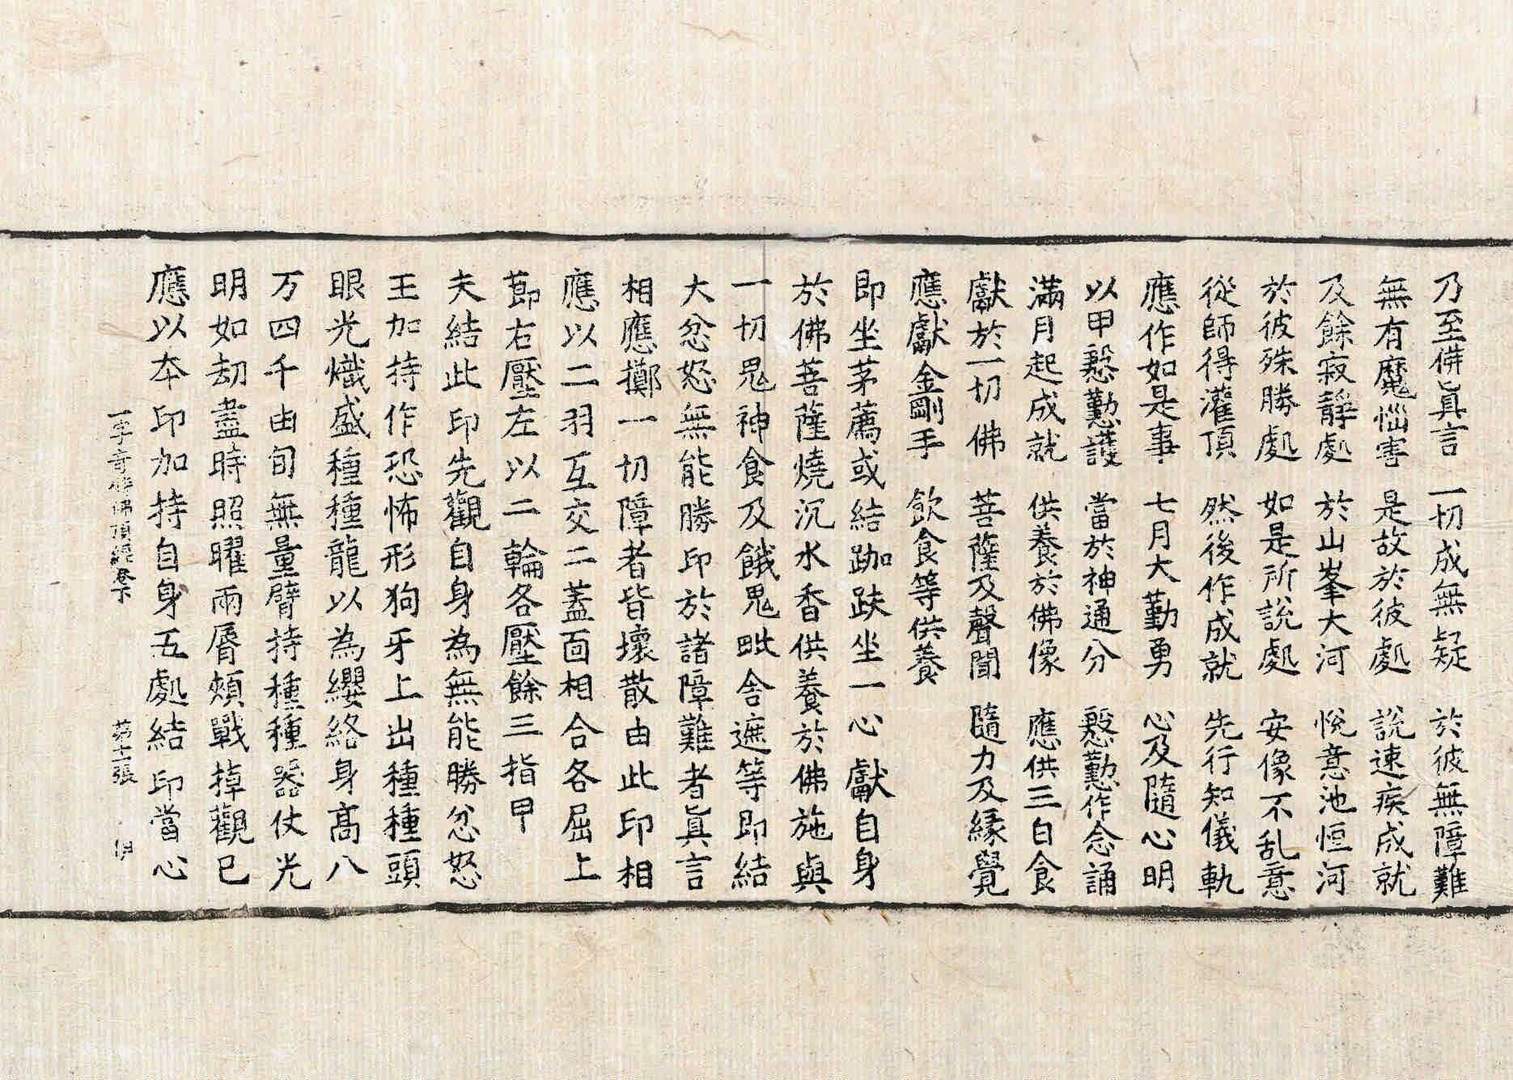 乃至佛眞言　一切成無疑　於彼無障難
無有魔惱害　是故於彼處　說速疾成就
及餘寂靜處　於山峯大河　悅意池恒河
於彼殊勝處　如是所說處　安像不乱意
從師得灌頂　然後作成就　先行知儀軌
應作如是事　七月大勤勇　心及隨心明
以甲慇勤護　當於神通分　慇勤作念誦
滿月起成就　供養於佛像　應供三白食
獻於一切佛　菩薩及聲聞　隨力及縁覺
應獻金剛手　飲食等供養
即坐茅薦或結跏趺坐一心獻自身
於佛菩薩燒沉水香供養於佛施與
一切鬼神食及餓鬼毗舍遮等即結
大忿怒無能勝印於諸障難者眞言
相應擲一切障者皆壞散由此印相
應以二羽互交二蓋面相合各屈上
節右壓左以二輪各壓餘三指甲
夫結此印先觀自身為無能勝忿怒
王加持作恐怖形狗牙上出種種頭
眼光熾盛種種龍以為纓絡身高八
万四千由旬無量臂持種種器仗光
明如劫盡時照曜兩脣頰戰掉觀已
應以本印加持自身五處結印當心
一字奇特佛頂經卷下　第十一張　伊